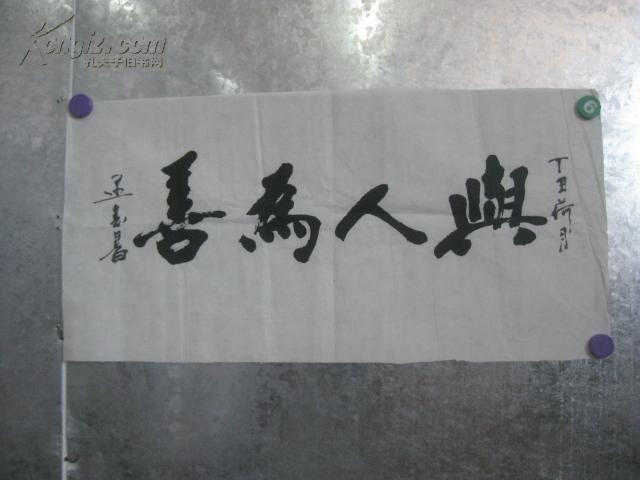 Kongfz.com
孔夫子旧书网
丁丑荷月
與人為善
6